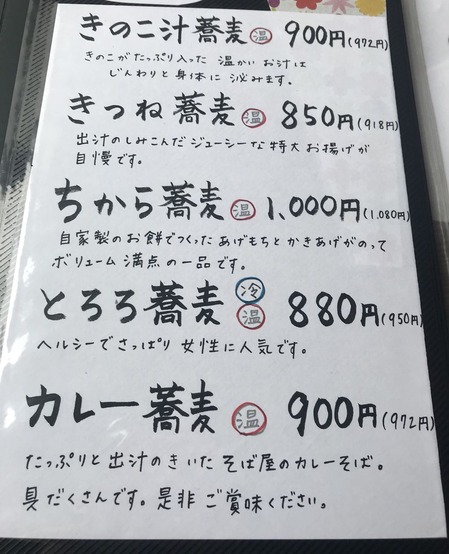 きのこ汁蕎麦 温 900円(972円)
きのこがたっぷり入った 温かい お汁は
じんわりと身体に 泌みます。
きつね蕎麦 温 850円(918円)
出汁のしみこんだジューシーな特大お揚げが
自慢です。
ちから蕎麦 温 1,000円(1.080円)
自家製のお餅でつくったあげもちとかきあげがのって
ボリューム満点の一品です。
とろろ蕎麦 冷 温 880円(950円)
ヘルシーでさっぱり 女性に人気です。
カレー蕎麦 温 900円(972円)
たっぷりと出汁のきいた そば屋のカレーそば。
具だくさんです。是非 ご賞味ください。